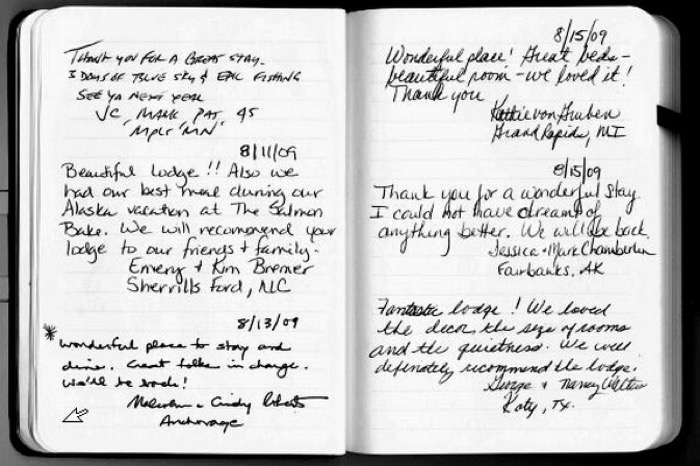 THANK YOU FOR A GREAT STAY.
3 DAYS OF BLUE SKY & EPIC FISHING
SEE YA NEXT YEAR
JC, MARK, PAT,
MPLS 'MN'
8/11/09
Beautiful lodge!! Also we
had our best meal during our
Alaska vacation at The Salmon
Bake. We will recommend your
lodge to our friends & family.
Emery & Kim Bremer
Sherrills Ford, NC
8/13/09
* Wonderful place to stay and
dine. Great folks in charge.
We'll be back!
Malcolm & Cindy
Anchorage
8/15/09
Wonderful place! Great beds-
beautiful room - we loved it!
Thank you
Kathie von
Grand Rapids, MI
8/15/09
Thank you for a wonderful stay.
I could not have dreamt of
anything better. We will be back.
Jessica & Mark Chamberlin
Fairbanks, AK
Fantastic lodge! We loved
the decor, the size of rooms
and the quietness. We will
definately recommend the lodge.
George & Nancy Walters
Katy, TX.